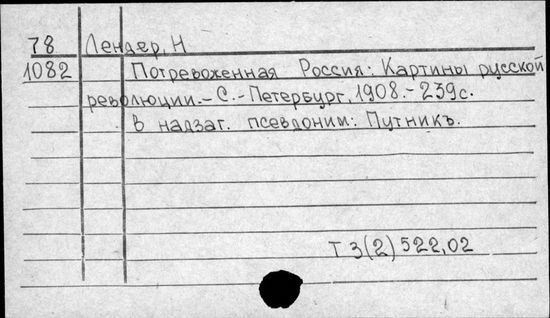 78 Лендер, Н
1082 Потревоженная Россия: Картины русской
революции.- С.-Петербург, 1908.- 239с.
в надзаг. псевдоним: Путникъ.
Т 3(2) 522,02